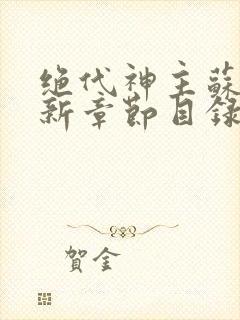 绝代神主蘇
新章節目錄
賀金